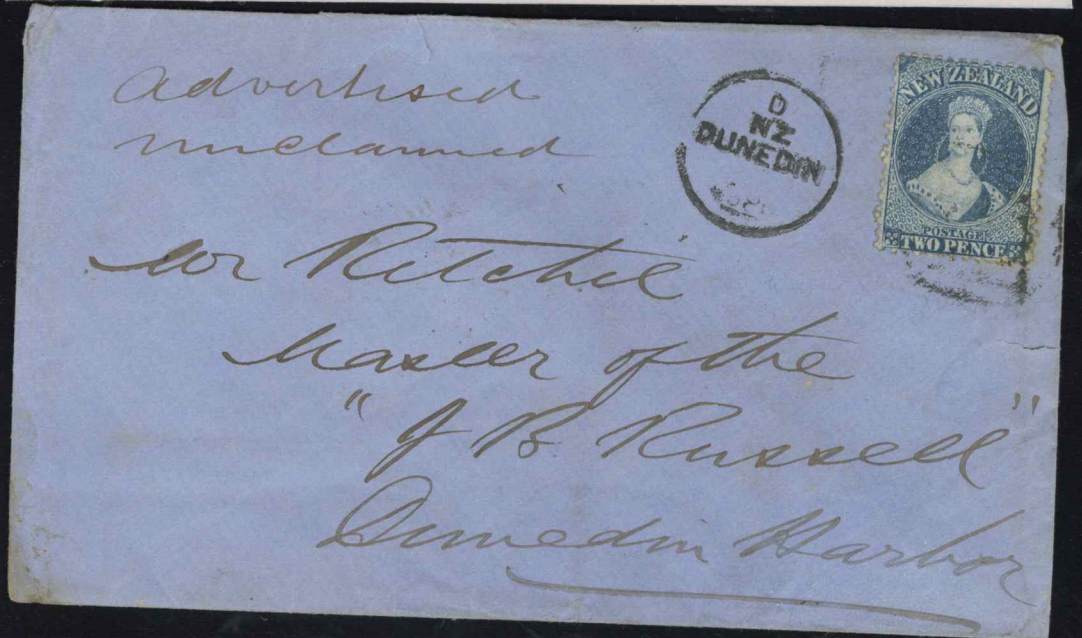 advertised
unclaimed
D
NZ
DUNEDIN
NEW ZEALAND
POSTAGE
TWO PENCE
Mr Ritchie
Master of the
"J B Russell"
Dunedin Harbor